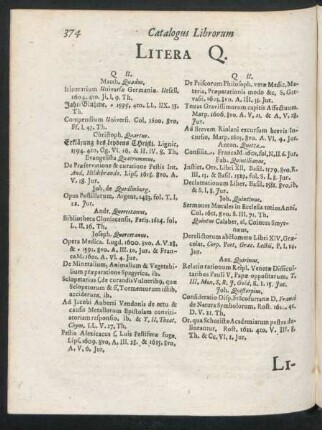 374 Catalogus Librorum
LITERA Q.
Q U.
Matth. Quadus,
Itinerarium Universæ Germaniæ. Ursell.
1602. 4to. Ji. I. 9. Th.
Jahr-Blühme, 1595. 4to. LL. IIX. 15.
Th.
Compendium Universi. Col. 1600. 8vo,
Ff. I. 47. Th.
Christoph. Quartus.
Erklärung des leydens Christi. Lignic.
1594. 4to, Gg. VI. 18. & II. IV. 9. Th.
Evangelista Quatramnus,
De Præservatione & curatione Pestis Int.
And. Hildebrando. Lips. 1615. 8vo. A.
V. 18. Jur.
Joh. de Quedlinburg.
Opus Postillatum, Argent. 1483. fol. T. I.
12. Jur.
Andr. Quercetanus,
Bibliotheca Cluniacensis, Paris. 1614. fol.
L. II. 16. Th.
Joseph. Quercetanus.
Opera Medica. Lugd. 1600. 8vo. A. V. 28.
& 1591. 8vo. A. III. 10. Jur. &
1602. A. VI. 4. Jur.
De Mineralium, Animalium & Vegetabilium
præparatione Spagyrica. ib.
Sclopetarius s. de curandis Vulneribg, quæ
Sclopetorum & Tormentorum ictibus
acciderunt, ib.
Ad Jacobi Auberti Vendonis de ortu &
causis Metallorum Epistolam convitiatoriam
responsio, ib. & T. II. Theat.
Chym. LL. V. 17. Th.
Pestis Alexicacus s. Luis Pestiferæ fuga.
Lips. 1609. 8vo. A. III. 28. & 1615. 8vo,
A. V. 6. Jur.
Q U.
De Priscorum Philosoph. veræ Medic. Materia,
Præparationis modo &c. S. Gervasii.
1603. 8vo. A. III. 35. Jur.
Tetras Gravissimorum capitis Affectuum.
Marp. 1606. 8vo. A. V. 21. & A. VI. 28.
Jur.
Ad Brevem Riolani excursum brevis Incursio.
Marp. 1605. 8vo. A. VI. 22. Jur.
Anton. Quetta.
Consilia. Francof. fol. K. II. 6. Jur.
Fab. Quintilianus,
Justit. Orr. Libri XII. Basil. 1579. 8vo. K.
III. 15. & 1529. fol. S. I. 5. Jur.
Declamationum Liber. Basil. 8vo. ib.
& S. I. 5. Jur.
Joh. Quintinus,
Sermones Morales in Ecclesia totius Anni.
Col. 1608. 8vo. S. III. 79. Th.
Quintus Calaber, al. Cointus Smyrnæus.
Derelictorum ab Homero Libri XIV, Græcolat.
Corp. Poet. Græc. Lectii. P. I. 12.
Jur.
Ant. Quirinus,
Relatio rationum Reipl. Venetæ Difficultatibus
Pauli V. Papæ oppositarum. T.
III. Mon. S. R. J. Gold. K. I. 15. Jur.
Joh. Quistorpius,
Consideratio Disp. D. Franci
de Natura Symbolorum. Rost. 4to.
D. V. 21. Th.
Or. quæ Schoristæ Academiarum pestes delineantur,
Rost. 1621. 4to. V. III. 8.
Th. & Cc. VI. 1. Jur.
LI-